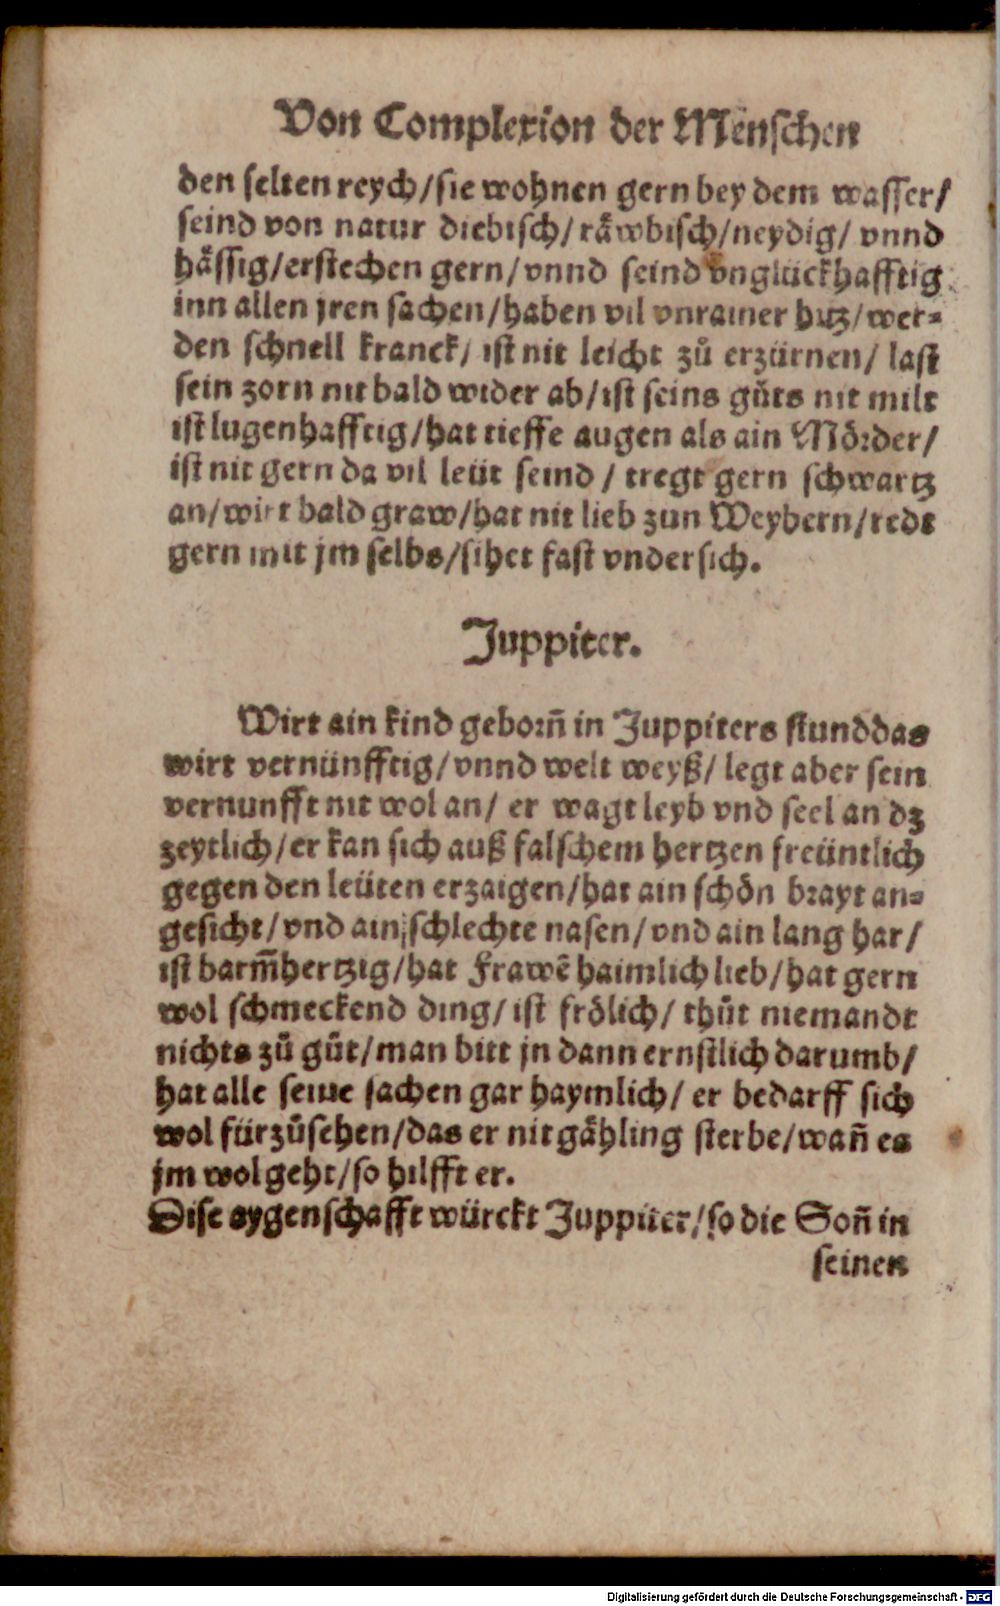 Von Complexion der Menschen
den selten reych/sie wohnen gern bey dem wasser/
seind von natur diebisch/räwbisch/neydig/ vnnd
hässig/erstechen gern/vnnd seind vnglückhafftig
inn allen jren sachen/haben vil vnrainer hitz/wer=
den schnell kranck/ ist nit leicht zů erzürnen/ last
sein zorn nit bald wider ab/ist seins gůts nit milt
ist lugenhafftig/hat tieffe augen als ain Mörder/
ist nit gern da vil leüt seind / tregt gern schwartz
an/wirt bald graw/hat nit lieb zun Weybern/redt
gern mit jm selbs/sihet fast vndersich.
Juppiter.
Wirt ain kind geborñ in Juppiters stund das
wirt vernünfftig/vnnd welt weyß/ legt aber sein
vernunfft nit wol an/ er wagt leyb vnd seel an dz
zeytlich/er kan sich auß falschem hertzen freüntlich
gegen den leüten erzaigen/hat ain schön brayt an=
gesicht/vnd ain schlechte nasen/vnd ain lang har/
ist barm̃hertzig/hat Frawẽ haimlich lieb/hat gern
wol schmeckend ding/ist frölich/ thůt niemandt
nichts zů gůt/man bitt jn dann ernstlich darumb/
hat alle seine sachen gar haymlich/ er bedarff sich
wol fürzůsehen/das er nit gähling sterbe/wañ es
jm wol geht/so hilfft er.
Dise aygenschafft würckt Juppiter/so die Soñ in
seinen
Digitalisierung gefördert durch die Deutsche Forschungsgemeinschaft - DFG